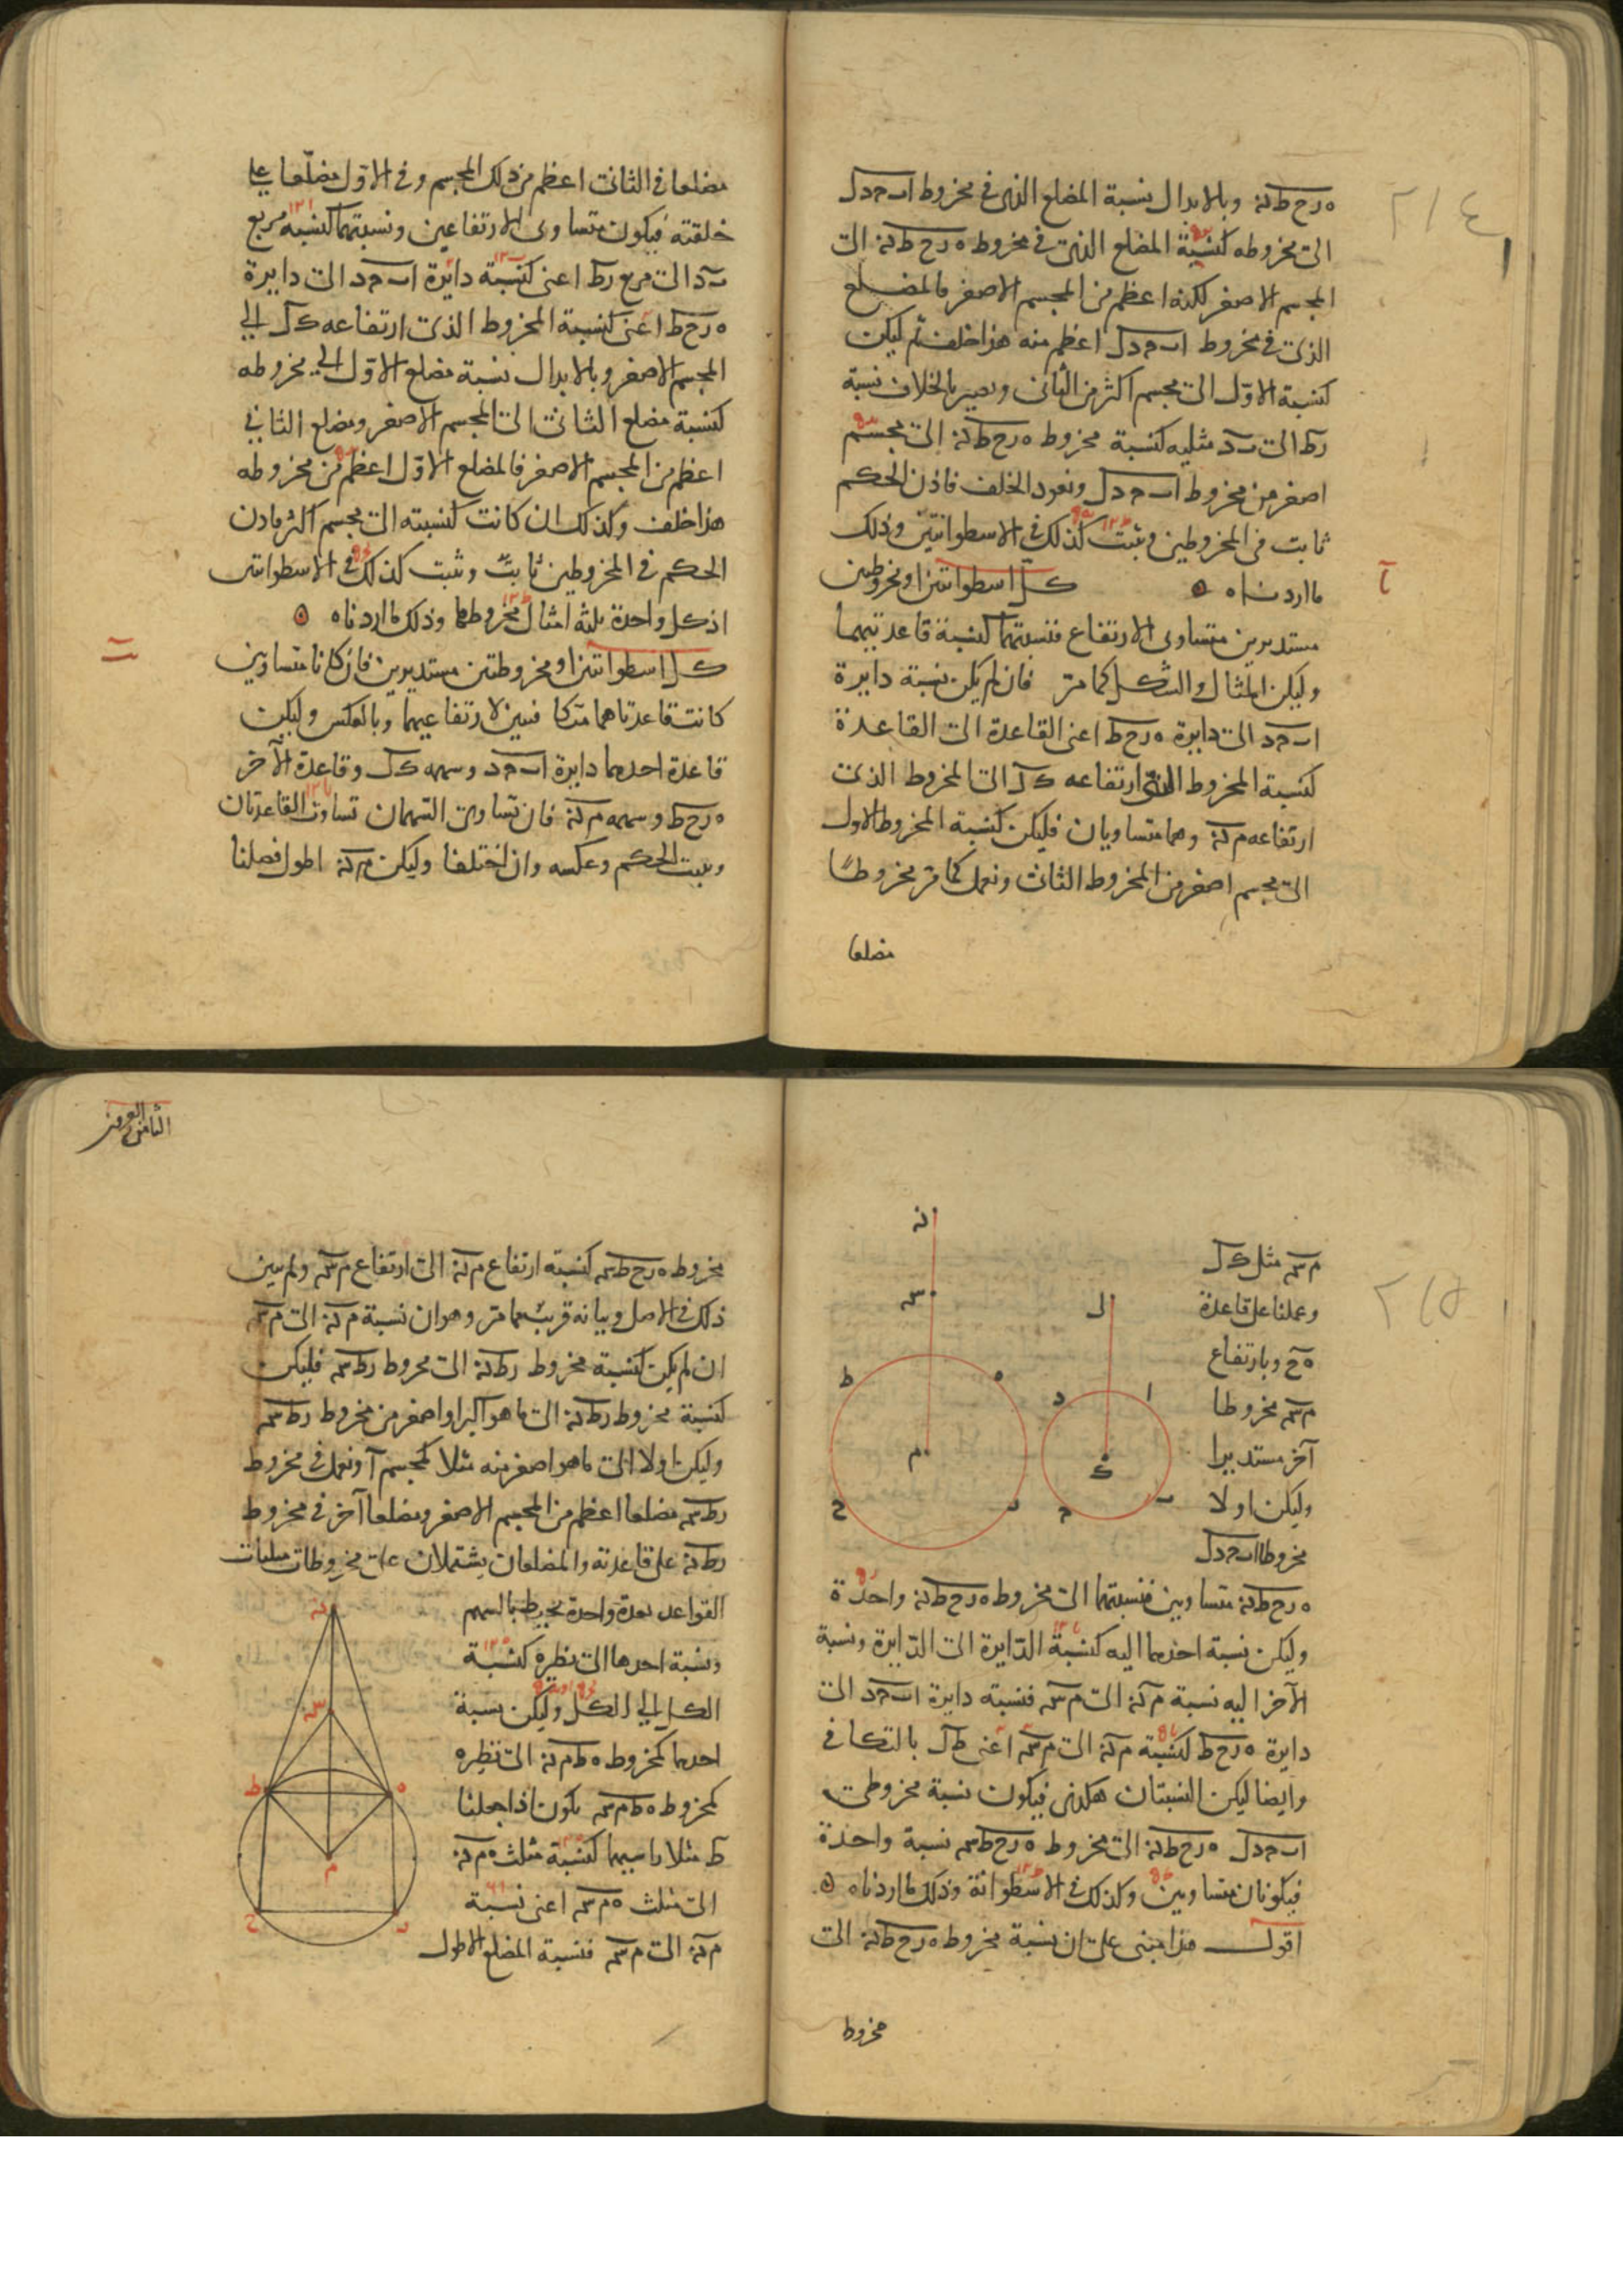 ٢١٤
ه ر ح ط نه وبالابدال نسبة المضلع الذى فى مخروط ا ب ح د ل
الى مخروطه كنسبة المضلع الذى فى مخروط ه ر ح ط نه الى
المجسم الاصغر لكنه اعظم من المجسم الاصغر فالمضلع
الذى فى مخروط ا ب ح د ل اعظم منه هذا خلف ثم ليكن
كنسبة الاول الى مجسم اكثر من الثانى ويصير بالخلاف نسبة
ر ط الى ب د مثليه كنسبة مخروط ه ر ح ط نه الى مجسم
اصغر من مخروط ا ب ح د ل ونعود الخلف فاذن الحكم
ثابت فى المخروطين وثبت كذلك فى الاسطوانتين وذلك
ما اردناه ه كل اسطوانتين او مخروطين
مستديرين متساوى الارتفاع فنسبتهما كنسبة قاعدتيهما
وليكن المثال والشكل كما مر فان لم يكن نسبة دايرة
ا ب ح د الى دايرة ه ر ح ط اعنى القاعدة الى القاعدة
كنسبة المخروط الذى ارتفاعه ك ل الى المخروط الذى
ارتفاعه م نه وهما متساويان فليكن كنسبة المخروط الاول
الى مجسم اصغر من المخروط الثانى ونعمل كما مر مخروطا
مضلعا
مضلعا فى الثانى اعظم من ذلك المجسم وفى الاول مضلعا على
خلقته فيكون متساوى الارتفاعين ونسبتهما كنسبة مربع
ب د الى مربع ر ط اعنى كنسبة دايرة ا ب ح د الى دايرة
ه ر ح ط اعنى كنسبة المخروط الذى ارتفاعه ك ل الى
المجسم الاصغر وبالابدال نسبة مضلع الاول الى مخروطه
كنسبة مضلع الثانى الى المجسم الاصغر ومضلع الثانى
اعظم من المجسم الاصغر فالمضلع الاول اعظم من مخروطه
هذا خلف وكذلك ان كانت كنسبته الى مجسم اكثر فاذن
الحكم فى المخروطين ثابت وثبت كذلك فى الاسطوانتين
اذ كل واحدة ثلثة امثال مخروطها وذلك ما اردناه ه
كل اسطوانتين او مخروطين مستديرين فان كانا متساويين
كانت قاعدتاهما متكافيتين لارتفاعيهما وبالعكس وليكن
قاعدة احدهما دايرة ا ب ح د وسهمه ك ل وقاعدة الآخر
ه ر ح ط وسهمه م نه فان تساوى السهمان تساوت القاعدتان
وثبت الحكم وعكسه وان اختلفا وليكن م نه اطول فصلنا
٢١٥
م س مثل ك ل
وعملنا على قاعدة
ه ح وبارتفاع
م س مخروطا
آخر مستديرا
وليكن اولا
مخروطا ا ب ح د ل
ه ر ح ط نه متساويين فنسبتهما الى مخروط ه ر ح ط نه واحدة
وليكن نسبة احدهما اليه كنسبة الدايرة الى الدايرة ونسبة
الآخر اليه نسبة م نه الى م س فنسبة دايرة ا ب ح د الى
دايرة ه ر ح ط كنسبة م نه الى م س اعنى ط ل بالتكافى
وايضا ليكن النسبتان هكذى فيكون نسبة مخروطى
ا ب ح د ل ه ر ح ط نه الى مخروط ه ر ح ط س نسبة واحدة
فيكونان متساويين وكذلك فى الاسطوانة وذلك ما اردناه ه
اقول هذا مبنى على ان نسبة مخروط ه ر ح ط نه الى
مخروط
مخروط ه ر ح ط س كنسبة ارتفاع م نه الى ارتفاع م س ولم يبين
ذلك فى الاصل وبيانه قريب مما مر وهو ان نسبة م نه الى م س
ان لم يكن كنسبة مخروط ر ط نه الى مخروط ر ط س فليكن
كنسبة مخروط ر ط نه الى ما هو اكبر او اصغر من مخروط ر ط س
وليكن اولا الى ما هو اصغر منه مثلا كمجسم آ ونعمل فى مخروط
ر ط س مضلعا اعظم من المجسم الاصغر ومضلعا آخر فى مخروط
ر ط نه على قاعدته والمضلعان يشتملان على مخروطات مثلثات
القواعد بعدة واحدة يحيط بالسهم
ونسبة احدها الى نظيره كنسبة
الكل الى الكل وليكن نسبة
احدها كمخروط ه ط م نه الى نظيره
كمخروط ه ط م س يكون اذا جعلنا
ط مثلا راسيهما كنسبة مثلث ه م نه
الى مثلث ه م س اعنى نسبة
م نه الى م س فنسبة المضلع الاطول